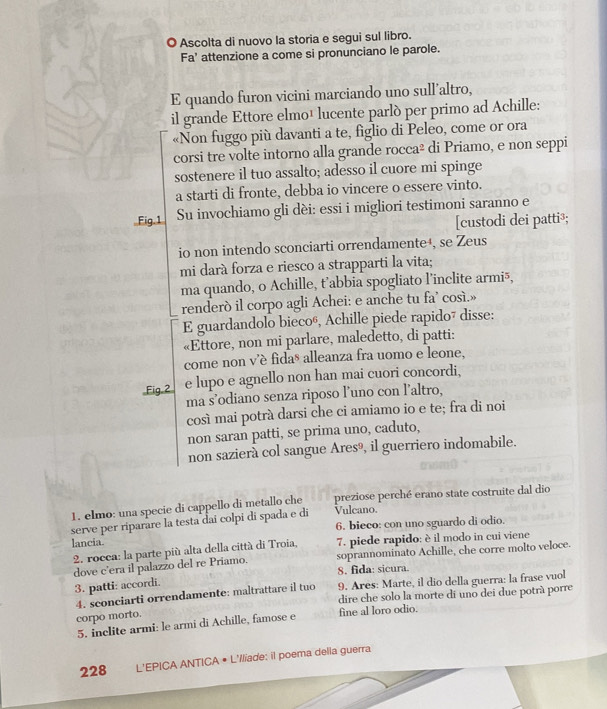 Ascolta di nuovo la storia e segui sul libro.
Fa' attenzione a come si pronunciano le parole.
E quando furon vicini marciando uno sull'altro,
il grande Ettore elmo¹ lucente parlò per primo ad Achille:
«Non fuggo più davanti a te, figlio di Peleo, come or ora
corsi tre volte intorno alla grande rocca² di Priamo, e non seppi
sostenere il tuo assalto; adesso il cuore mi spinge
a starti di fronte, debba io vincere o essere vinto.
Fig.1 Su invochiamo gli dèi: essi i migliori testimoni saranno e
[custodi dei patti³;
io non intendo sconciarti orrendamente⁴, se Zeus
mi darà forza e riesco a strapparti la vita;
ma quando, o Achille, t'abbia spogliato l'inclite armi⁵,
renderò il corpo agli Achei: e anche tu fa' così.»
E guardandolo bieco⁶, Achille piede rapido⁷ disse:
«Ettore, non mi parlare, maledetto, di patti:
come non v'è fida⁸ alleanza fra uomo e leone,
Fig.2 e lupo e agnello non han mai cuori concordi,
ma s'odiano senza riposo l'uno con l'altro,
così mai potrà darsi che ci amiamo io e te; fra di noi
non saran patti, se prima uno, caduto,
non sazierà col sangue Ares⁹, il guerriero indomabile.
1. elmo: una specie di cappello di metallo che
serve per riparare la testa dai colpi di spada e di
lancia.
2. rocca: la parte più alta della città di Troia,
dove c'era il palazzo del re Priamo.
3. patti: accordi.
4. sconciarti orrendamente: maltrattare il tuo
corpo morto.
5. inclite armi: le armi di Achille, famose e
preziose perché erano state costruite dal dio
Vulcano.
6. bieco: con uno sguardo di odio.
7. piede rapido: è il modo in cui viene
soprannominato Achille, che corre molto veloce.
8. fida: sicura.
9. Ares: Marte, il dio della guerra: la frase vuol
dire che solo la morte di uno dei due potrà porre
fine al loro odio.
228 L'EPICA ANTICA • L'Iliade: il poema della guerra